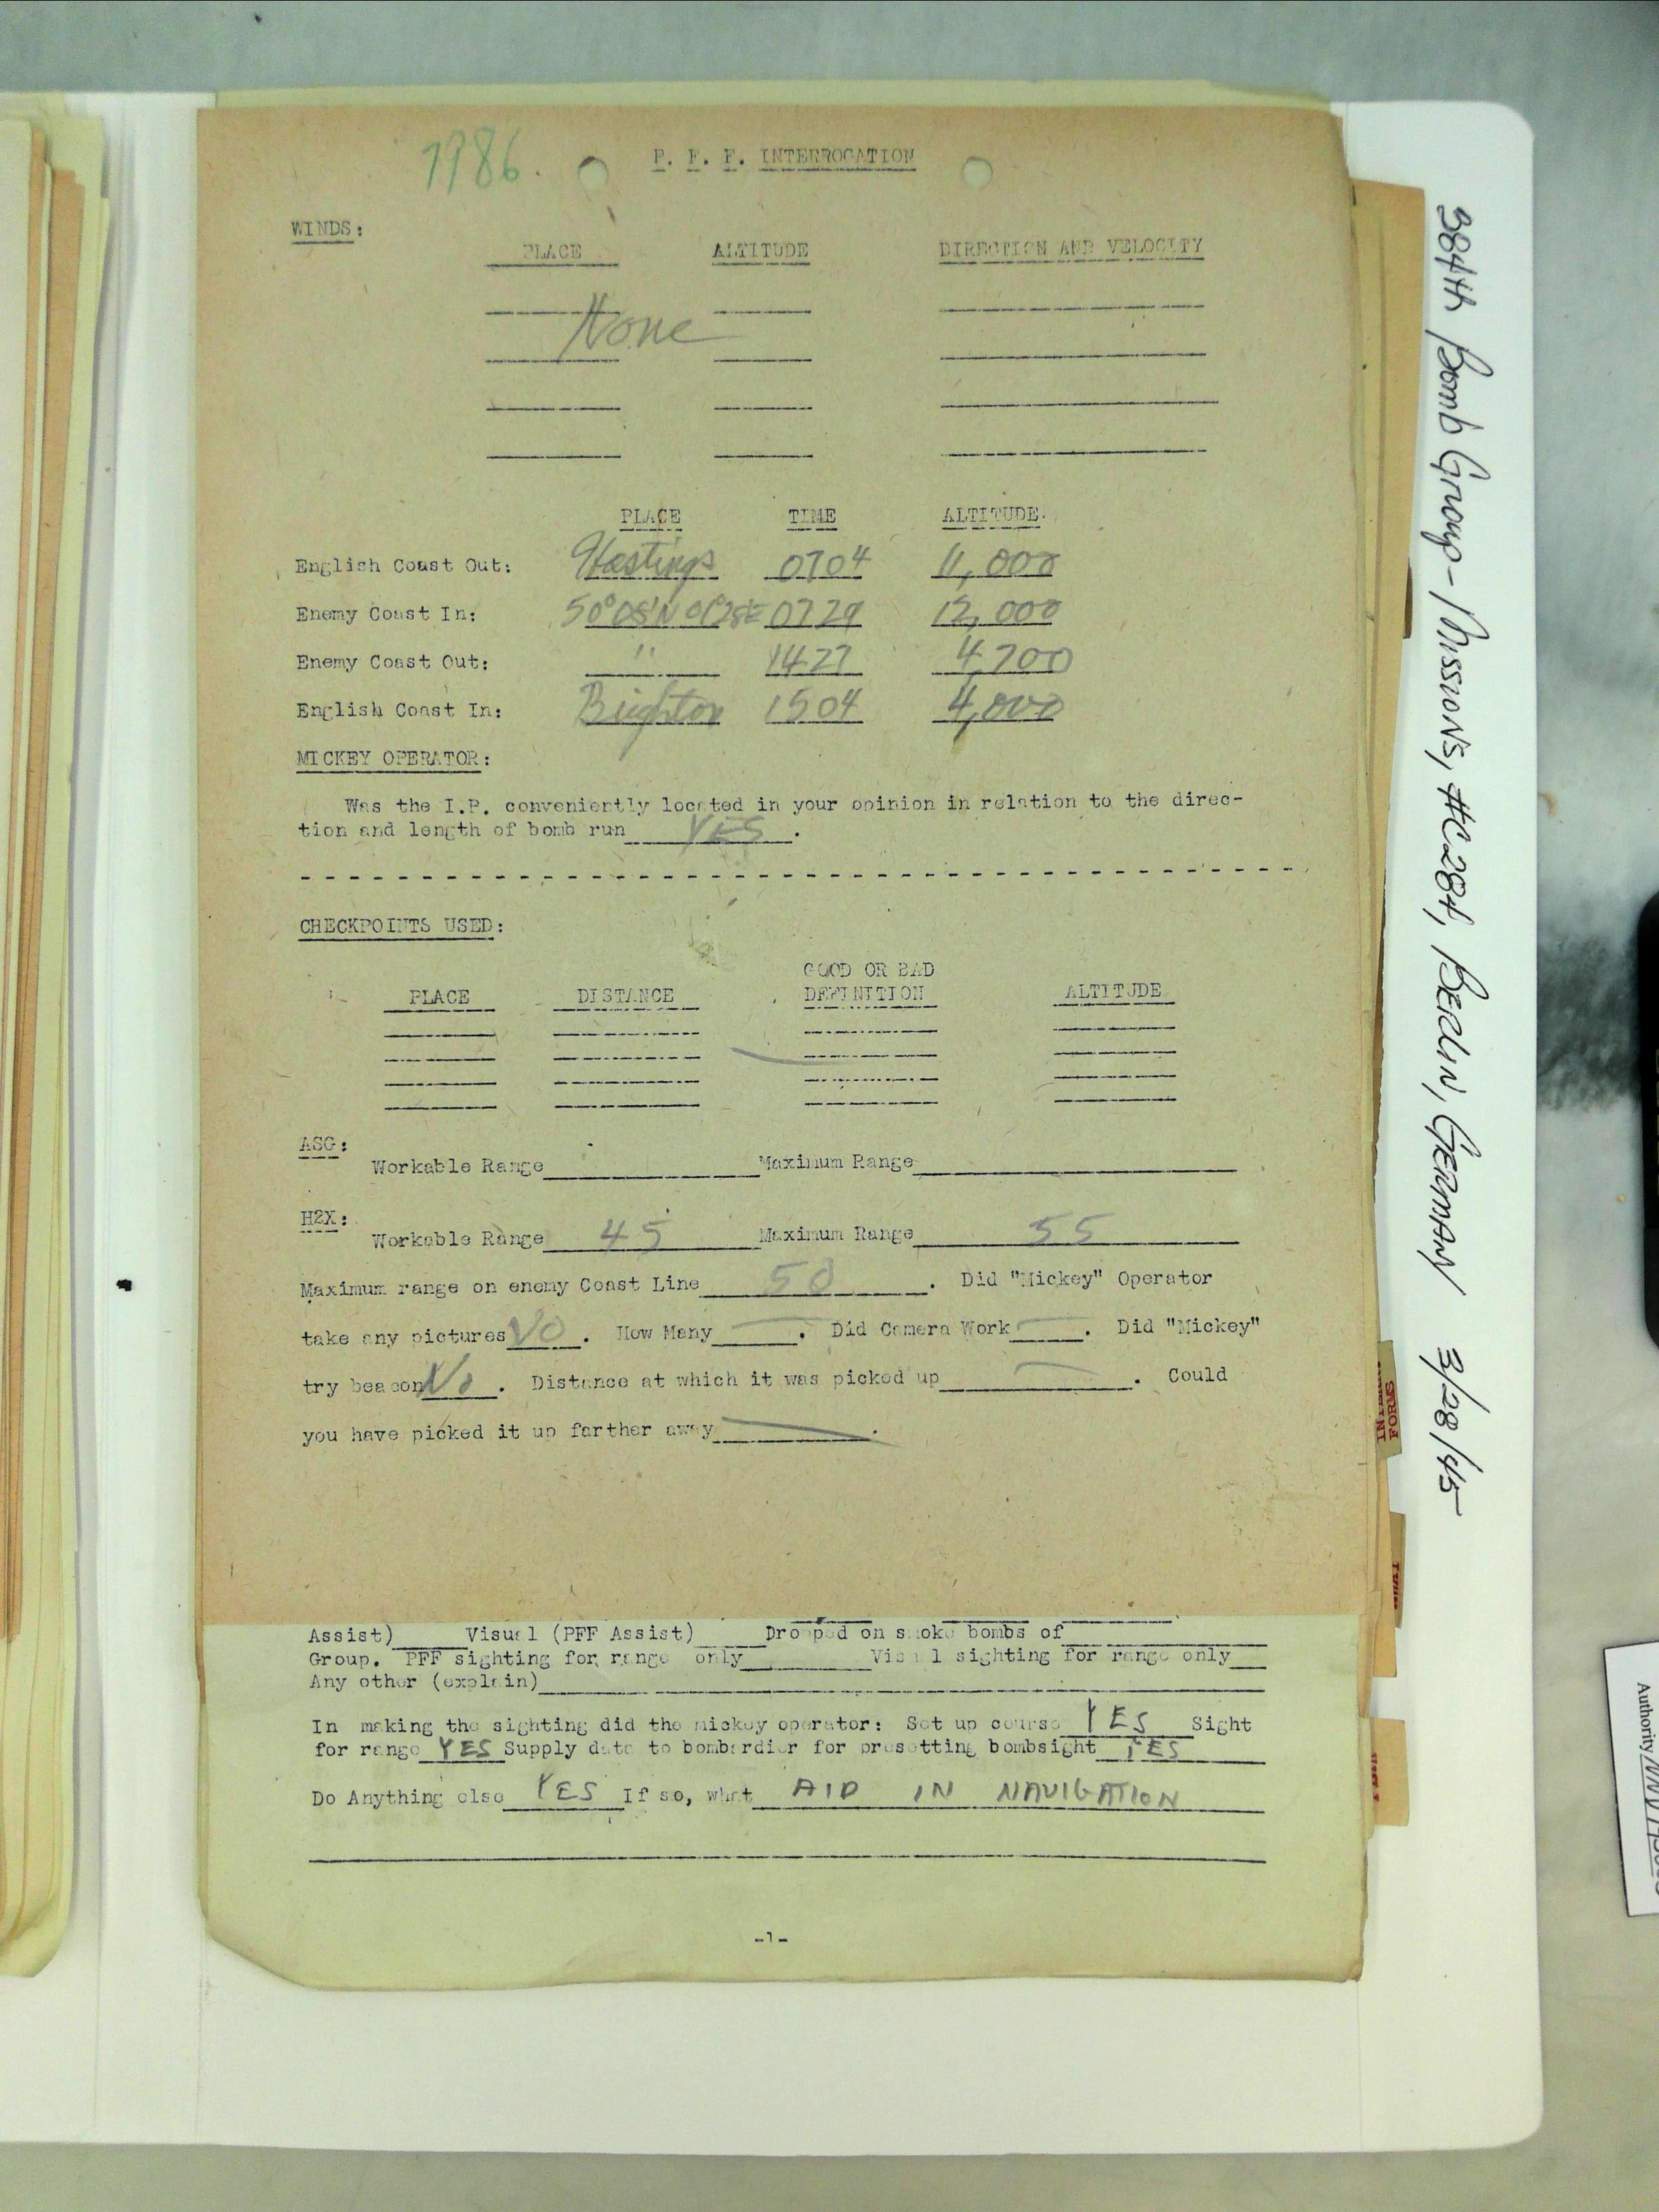 7986.
P. F. F. INTERROGATION
WINDS:
PLACE ALTITUDE DIRECTION AND VELOCITY
None
PLACE TIME ALTITUDE
English Coast Out: Hastings 0704 11,000
Enemy Coast In: 50° 08'N 0729 12,000
Enemy Coast Out: " 1427 4700
English Coast In: Brighton 1504 4,000
MICKEY OPERATOR:
Was the I.P. conveniently located in your opinion in relation to the direc-
tion and length of bomb run YES .
CHECKPOINTS USED:
GOOD OR BAD
PLACE DISTANCE DEFINITION ALTITUDE
ASG:
Workable Range Maximum Range
H2X:
Workable Range 45 Maximum Range 55
Maximum range on enemy Coast Line 50 . Did "Mickey" Operator
take any pictures NO . How Many — . Did Camera Work — . Did "Mickey"
try beacon No . Distance at which it was picked up — . Could
you have picked it up farther away — .
Assist) Visual (PFF Assist) Dropped on smoke bombs of
Group. PFF sighting for range only Visual sighting for range only
Any other (explain)
In making the sighting did the mickey operator: Set up course YES Sight
for range YES Supply data to bombardier for presetting bombsight YES
Do Anything else YES If so, what AID IN NAVIGATION
-1-
384th Bomb Group - Missions, #C284, BERLIN, GERMANY 3/28/45
FORMS
Authority